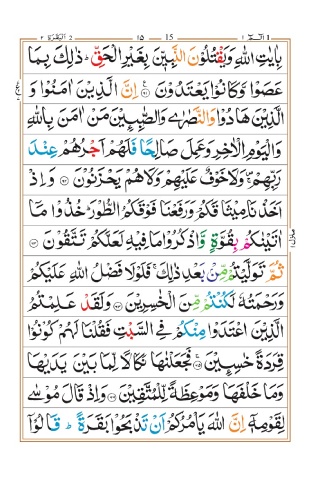 ٢ البقرة 2 ١٥ 15 الٓمّٓ ١
بِاٰیٰتِ اللّٰهِ وَیَقْتُلُوْنَ النَّبِیّٖنَ بِغَیْرِ الْحَقِّ ؕ ذٰلِكَ بِمَا
عَصَوْا وَّكَانُوْا یَعْتَدُوْنَ ۟ اِنَّ الَّذِیْنَ اٰمَنُوْا وَ
الَّذِیْنَ هَادُوْا وَالنَّصٰرٰی وَالصّٰبِـِٕیْنَ مَنْ اٰمَنَ بِاللّٰهِ
وَالْیَوْمِ الْاٰخِرِ وَعَمِلَ صَالِحًا فَلَهُمْ اَجْرُهُمْ عِنْدَ
رَبِّهِمْ ۚ وَلَا خَوْفٌ عَلَیْهِمْ وَلَا هُمْ یَحْزَنُوْنَ ۟ وَاِذْ
اَخَذْنَا مِیْثَاقَكُمْ وَرَفَعْنَا فَوْقَكُمُ الطُّوْرَ ؕ خُذُوْا مَاۤ
اٰتَیْنٰكُمْ بِقُوَّةٍ وَّاذْكُرُوْا مَا فِیْهِ لَعَلَّكُمْ تَتَّقُوْنَ ۟
ثُمَّ تَوَلَّیْتُمْ مِّنْ بَعْدِ ذٰلِكَ ۚ فَلَوْلَا فَضْلُ اللّٰهِ عَلَیْكُمْ
وَرَحْمَتُهٗ لَكُنْتُمْ مِّنَ الْخٰسِرِیْنَ ۟ وَلَقَدْ عَلِمْتُمُ
الَّذِیْنَ اعْتَدَوْا مِنْكُمْ فِی السَّبْتِ فَقُلْنَا لَهُمْ كُوْنُوْا
قِرَدَةً خٰسِـِٕیْنَ ۟ فَجَعَلْنٰهَا نَكَالًا لِّمَا بَیْنَ یَدَیْهَا
وَمَا خَلْفَهَا وَمَوْعِظَةً لِّلْمُتَّقِیْنَ ۟ وَاِذْ قَالَ مُوْسٰی
لِقَوْمِهٖۤ اِنَّ اللّٰهَ یَاْمُرُكُمْ اَنْ تَذْبَحُوْا بَقَرَةً ؕ قَالُوْۤا